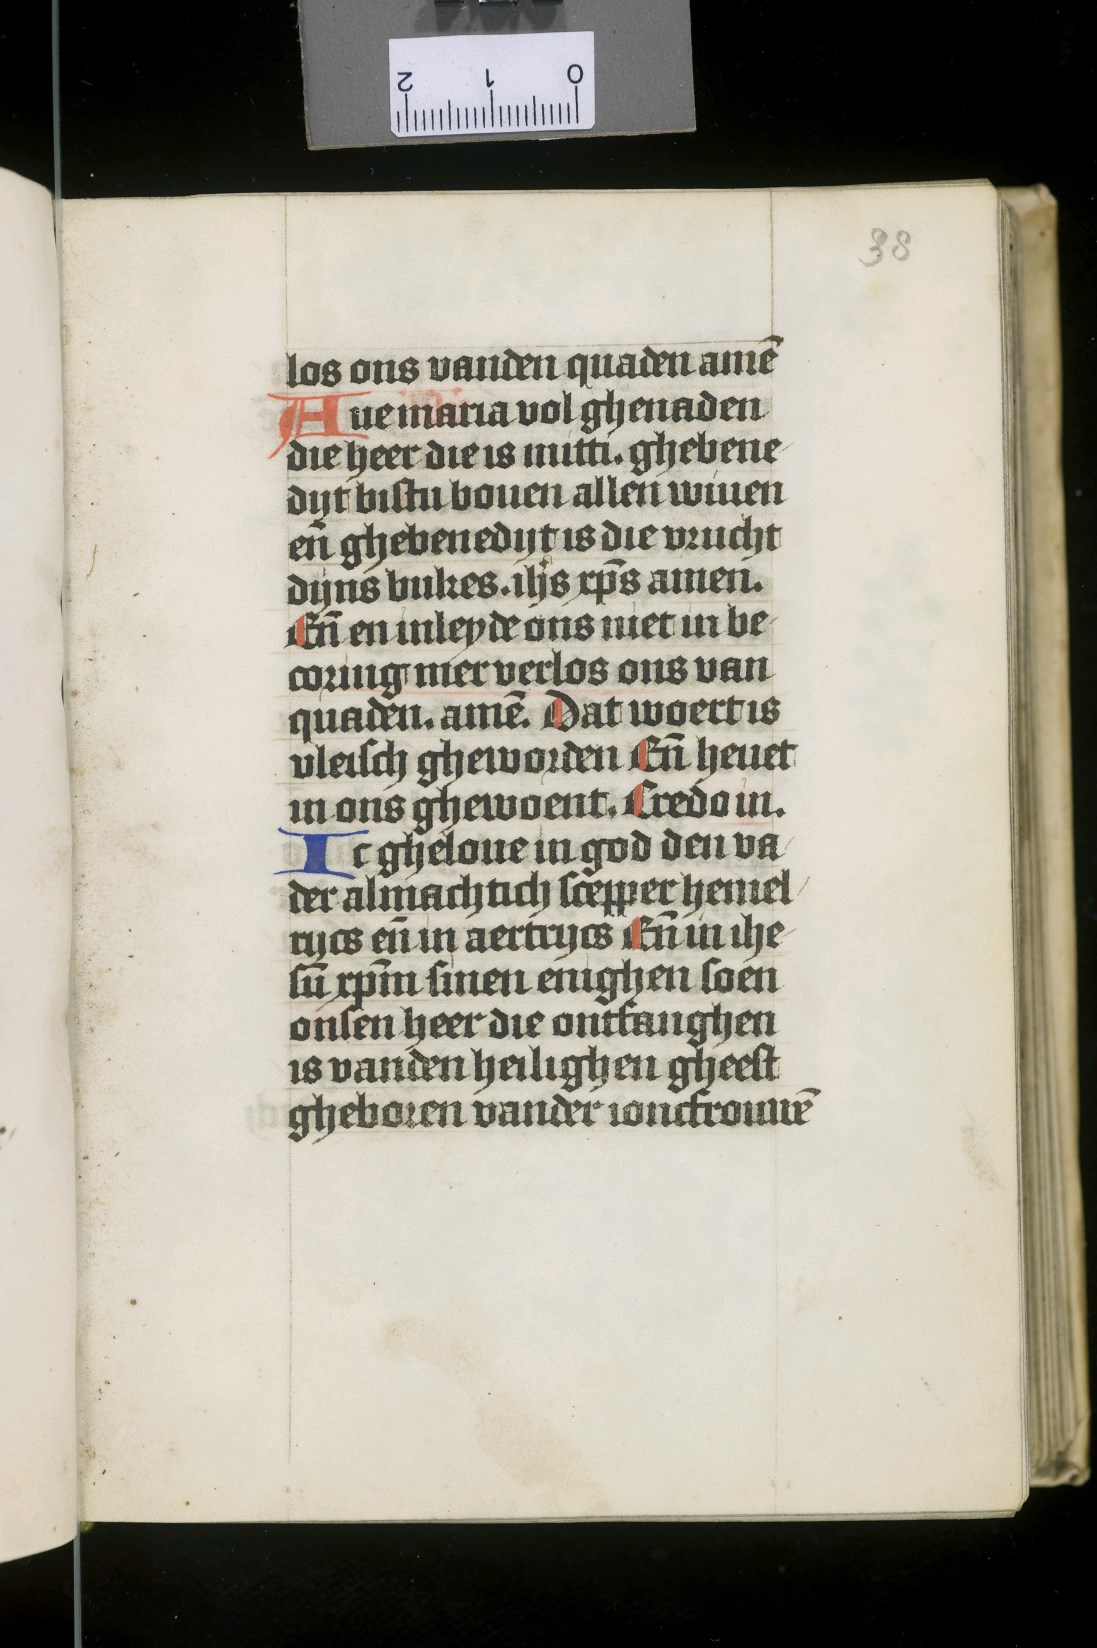 2 1 0
38
los ons vanden quaden amē
Aue maria vol ghenaden
die heer die is mitti. ghebene
dijt bistu bouen allen wiuen
eñ ghebenedijt is die vrucht
dijns bukes. ihs xp̄s amen.
Eñ en inleyde ons niet in be
coring mer verlos ons van
quaden. amē. Dat woert is
vleisch gheworden Eñ heuet
in ons ghewoent. Credo in.
Ic gheloue in god den va
der almachtich scepper hemel
rijcs eñ in aertrijcs Eñ in ihe
sū xp̄m sinen enighen soen
onsen heer die ontfanghen
is vanden heilighen gheest
gheboren vander ioncfrouwē